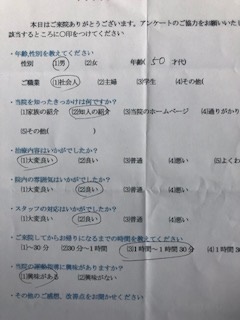 本日はご来院ありがとうございます。アンケートのご協力をお願いいた
該当するところに〇印をつけてください
・年齢,性別を教えてください
性別 (1)男 (2)女 年齢( 50 才代)
ご職業 (1)社会人 (2)主婦 (3)学生 (4)その他(
・当院を知ったきっかけは何ですか?
(1)家族の紹介 (2)知人の紹介 (3)当院のホームページ (4)通りがかり
(5)その他( )
・治療内容はいかがでしたか?
(1)大変良い (2)良い (3)普通 (4)悪い (5)よくわ
・院内の雰囲気はいかがでしたか?
(1)大変良い (2)良い (3)普通 (4)悪い
・スタッフの対応はいかがでしたか?
(1)大変良い (2)良い (3)普通 (4)悪い
・ご来院してからお帰りになるまでの時間を教えてください
(1)~30分 (2)30分~1時間 (3)1時間~1時間30分 (4)1時
・当院の運動指導に興味がありますか?
(1)興味がある (2)興味がない
・その他のご感想、改善点をお聞かせください